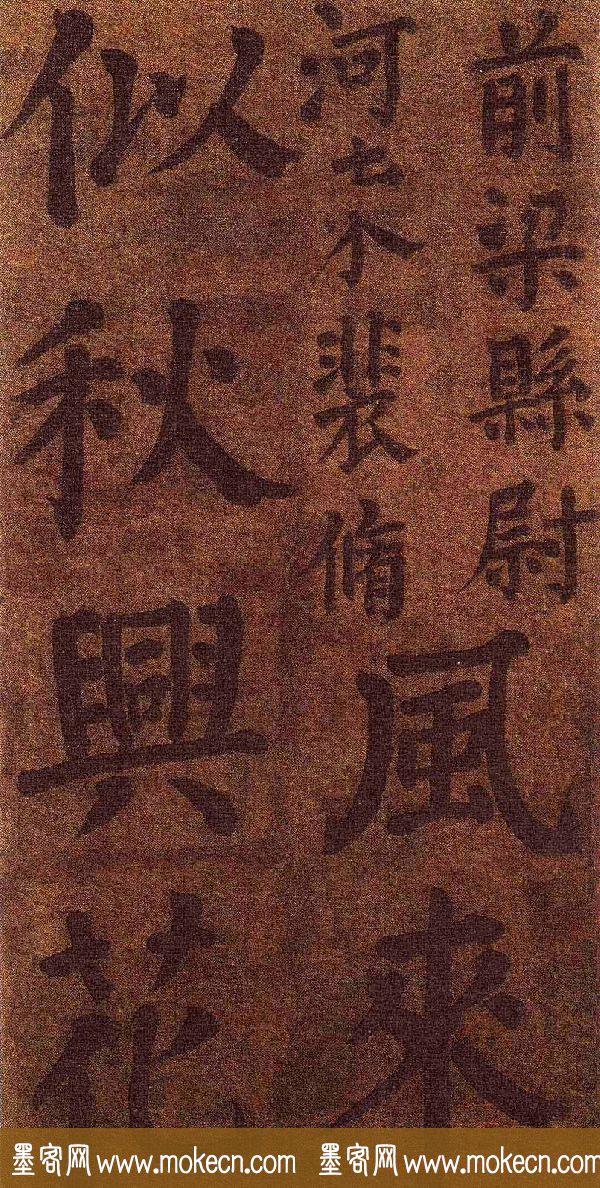 前梁縣尉
河裴脩
風來
似秋興花
墨客网 www.mokecn.com 墨客网 www.mokecn.com